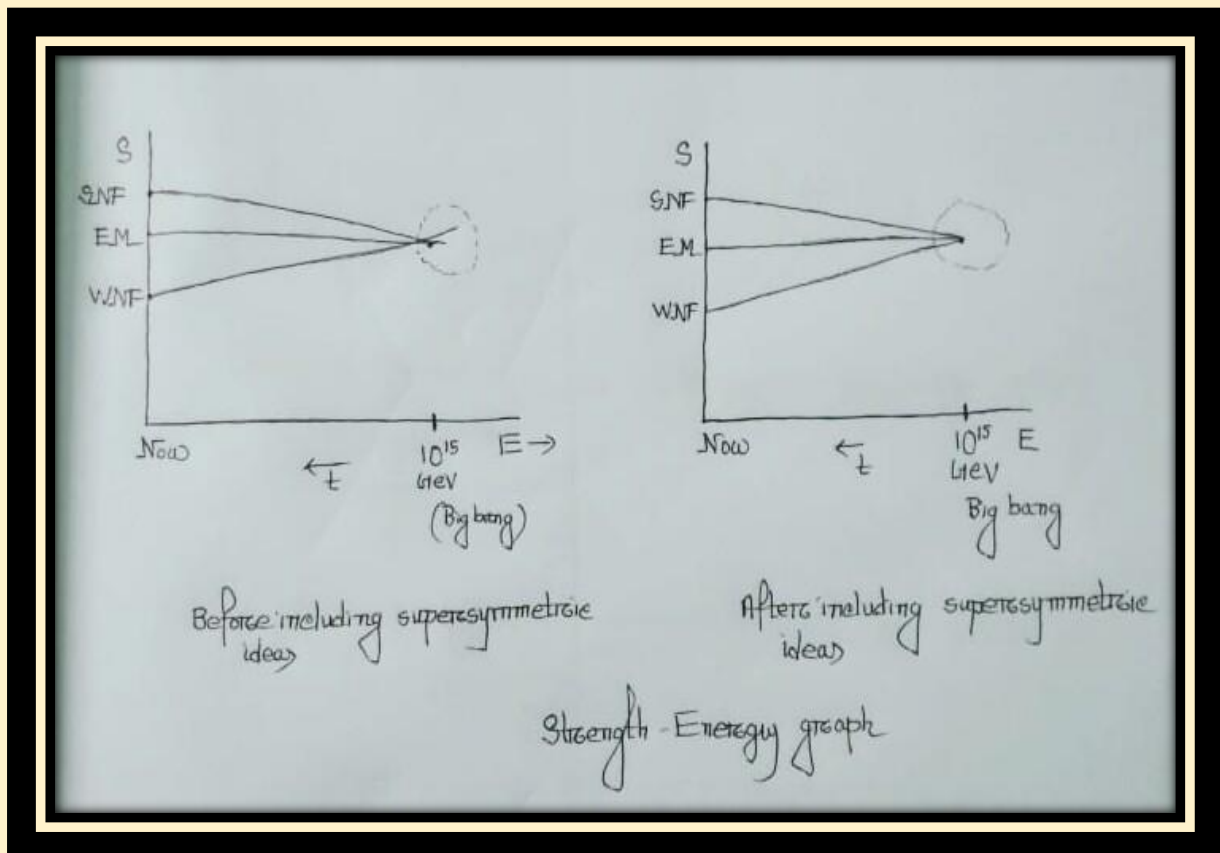 S
SNF
EM
WNF
Now
← t
10¹⁵
GeV
(Big bang)
E →
Before including supersymmetric
ideas
S
SNF
EM
WNF
Now
← t
10¹⁵
GeV
Big bang
E
After including supersymmetric
ideas
Strength - Energy graph